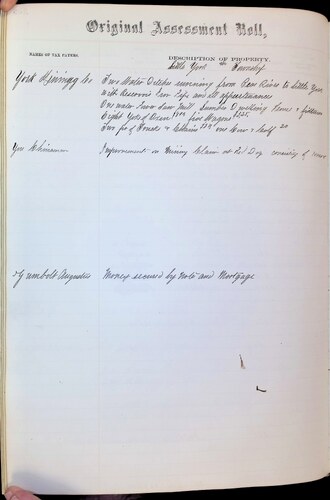 Original Assessment Roll,
NAMES OF TAX PAYERS.
DESCRIPTION OF PROPERTY.
Little York Township
York Mining Co Two Water Ditches running from Bear River to Little York
with Reservoir and all appurtenances
One water Saw Mill Dwelling House
Eight Yoke of Oxen five Wagons
Two of one Cow & Calf 20
You Chinaman Improvement on Mining Claim at Red Dog
Gumbolt Augustus Money secured by Note and Mortgage